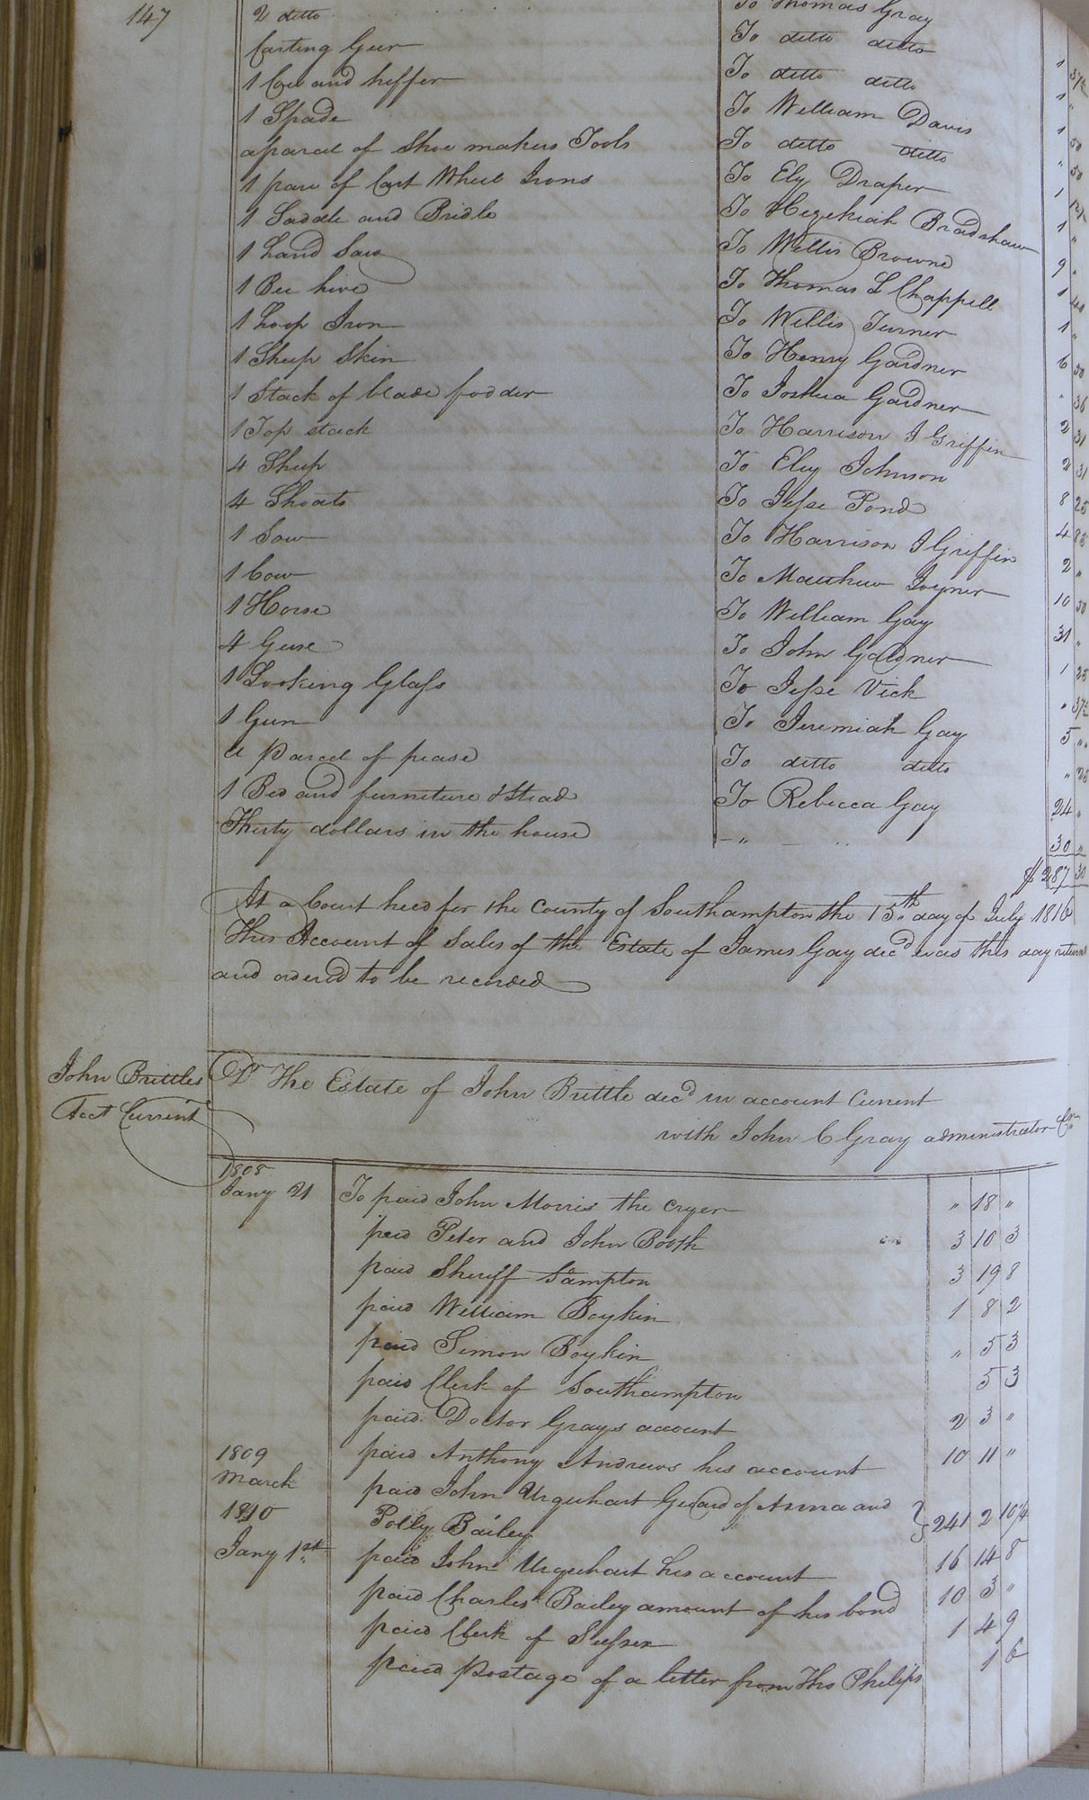 147
2 ditto To Thomas Gray
Carting Geer To ditto ditto 1 37½
1 Cow and heffer To ditto ditto 1 "
1 Spade To William Davis 1 50
a parcel of Shoe makers Tools To ditto ditto " 50
1 pare of Cart Wheel Irons To Ely Draper 1
1 Saddle and Bridle To Hezekiah Bradshaw 1 "
1 hand Saw To Willis Browne 9 "
1 Bee hive To Thomas L Chappell 1
1 hoop Iron To Willis Turner 1 "
1 Sheep Skin To Henry Gardner 6 50
1 Stack of blade fodder To Joshua Gardner " 36
1 Top stack To Harrison J Griffin 2 31
4 Sheep To Eley Johnson 2 31
4 Shoats To Jesse Pond 8 25
1 Sow To Harrison J Griffin 4
1 Cow To Matthew Joyner 2 "
1 Horse To William Gay 10 50
4 Geese To John Gardner 31 "
1 Looking Glass To Jesse Vick 1 25
1 Gun To Jeremiah Gay " 37½
a Parcel of pease To ditto ditto 5 "
1 Bed and furniture & Stead To Rebecca Gay 24 "
Thirty dollars in the house " 30 "
$ 287 30
At a Court held for the County of Southampton the 15th day of July 1816
This Account of Sales of the Estate of James Gay decd was this day returned
and ordered to be recorded
John Brittles
Acct Current
Dr The Estate of John Brittle decd in account Current
with John C Gray administrator Cr
1808
Jany 21 To paid John Morris the cryer " 18 "
paid Peter and John Booth 3 10 3
paid Sheriff Sampton 3 19 8
paid William Boykin 1 8 2
paid Simon Boykin " 5 3
paid Clerk of Southampton 5 3
paid Doctor Grays account 2 3 "
1809 paid Anthony Andrews his account 10 11 "
March paid John Urquhart Guard of Anna and
1810 Polly Bailey } 241 2 10¼
Jany 1st paid John Urquhart his account 16 14 8
paid Charles Bailey amount of his bond 10 3 "
paid Clerk of Sussex 1 4 9
paid postage of a letter from Thos Philips 1 6